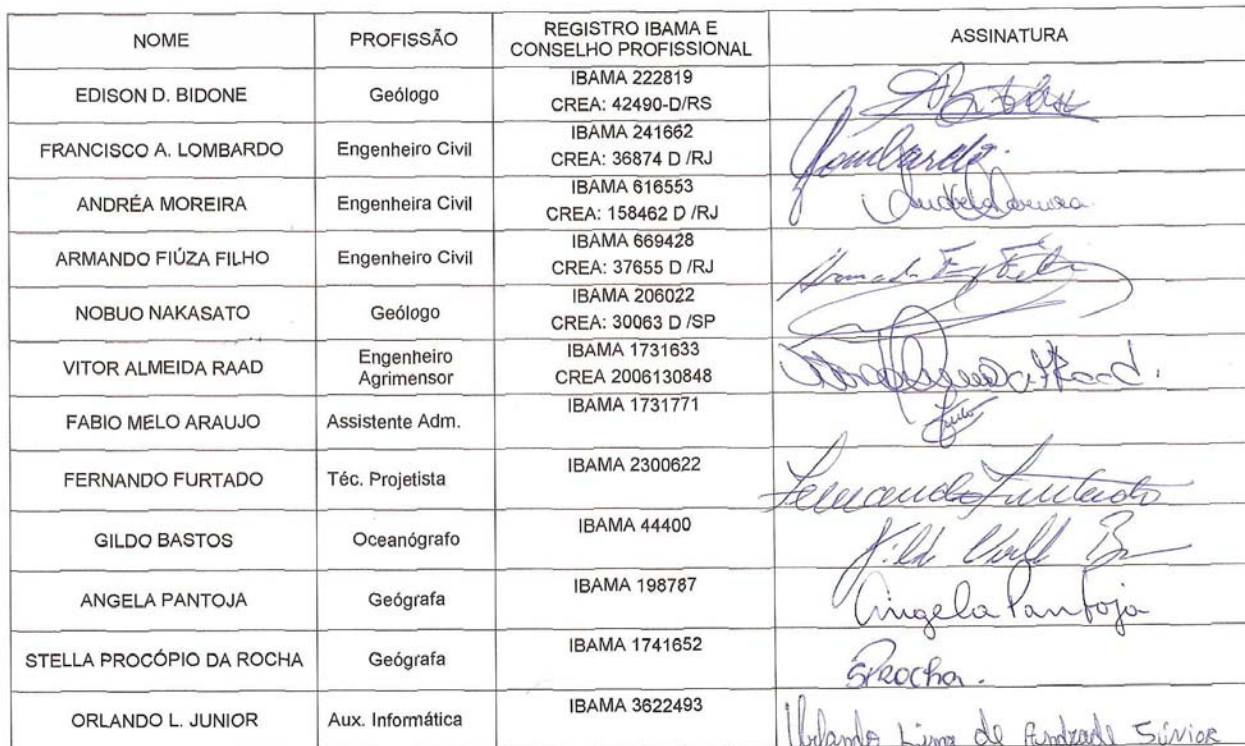 NOME PROFISSÃO REGISTRO IBAMA E CONSELHO PROFISSIONAL ASSINATURA
EDISON D. BIDONE Geólogo IBAMA 222819
CREA: 42490-D/RS
FRANCISCO A. LOMBARDO Engenheiro Civil IBAMA 241662
CREA: 36874 D /RJ Lombardo.
ANDRÉA MOREIRA Engenheira Civil IBAMA 616553
CREA: 158462 D /RJ
ARMANDO FIÚZA FILHO Engenheiro Civil IBAMA 669428
CREA: 37655 D /RJ
NOBUO NAKASATO Geólogo IBAMA 206022
CREA: 30063 D /SP
VITOR ALMEIDA RAAD Engenheiro Agrimensor IBAMA 1731633
CREA 2006130848
FABIO MELO ARAUJO Assistente Adm. IBAMA 1731771
FERNANDO FURTADO Téc. Projetista IBAMA 2300622 Fernando Furtado
GILDO BASTOS Oceanógrafo IBAMA 44400
ANGELA PANTOJA Geógrafa IBAMA 198787 Angela Pantoja
STELLA PROCÓPIO DA ROCHA Geógrafa IBAMA 1741652 SPRocha.
ORLANDO L. JUNIOR Aux. Informática IBAMA 3622493 Orlando Lima de Andrade Júnior